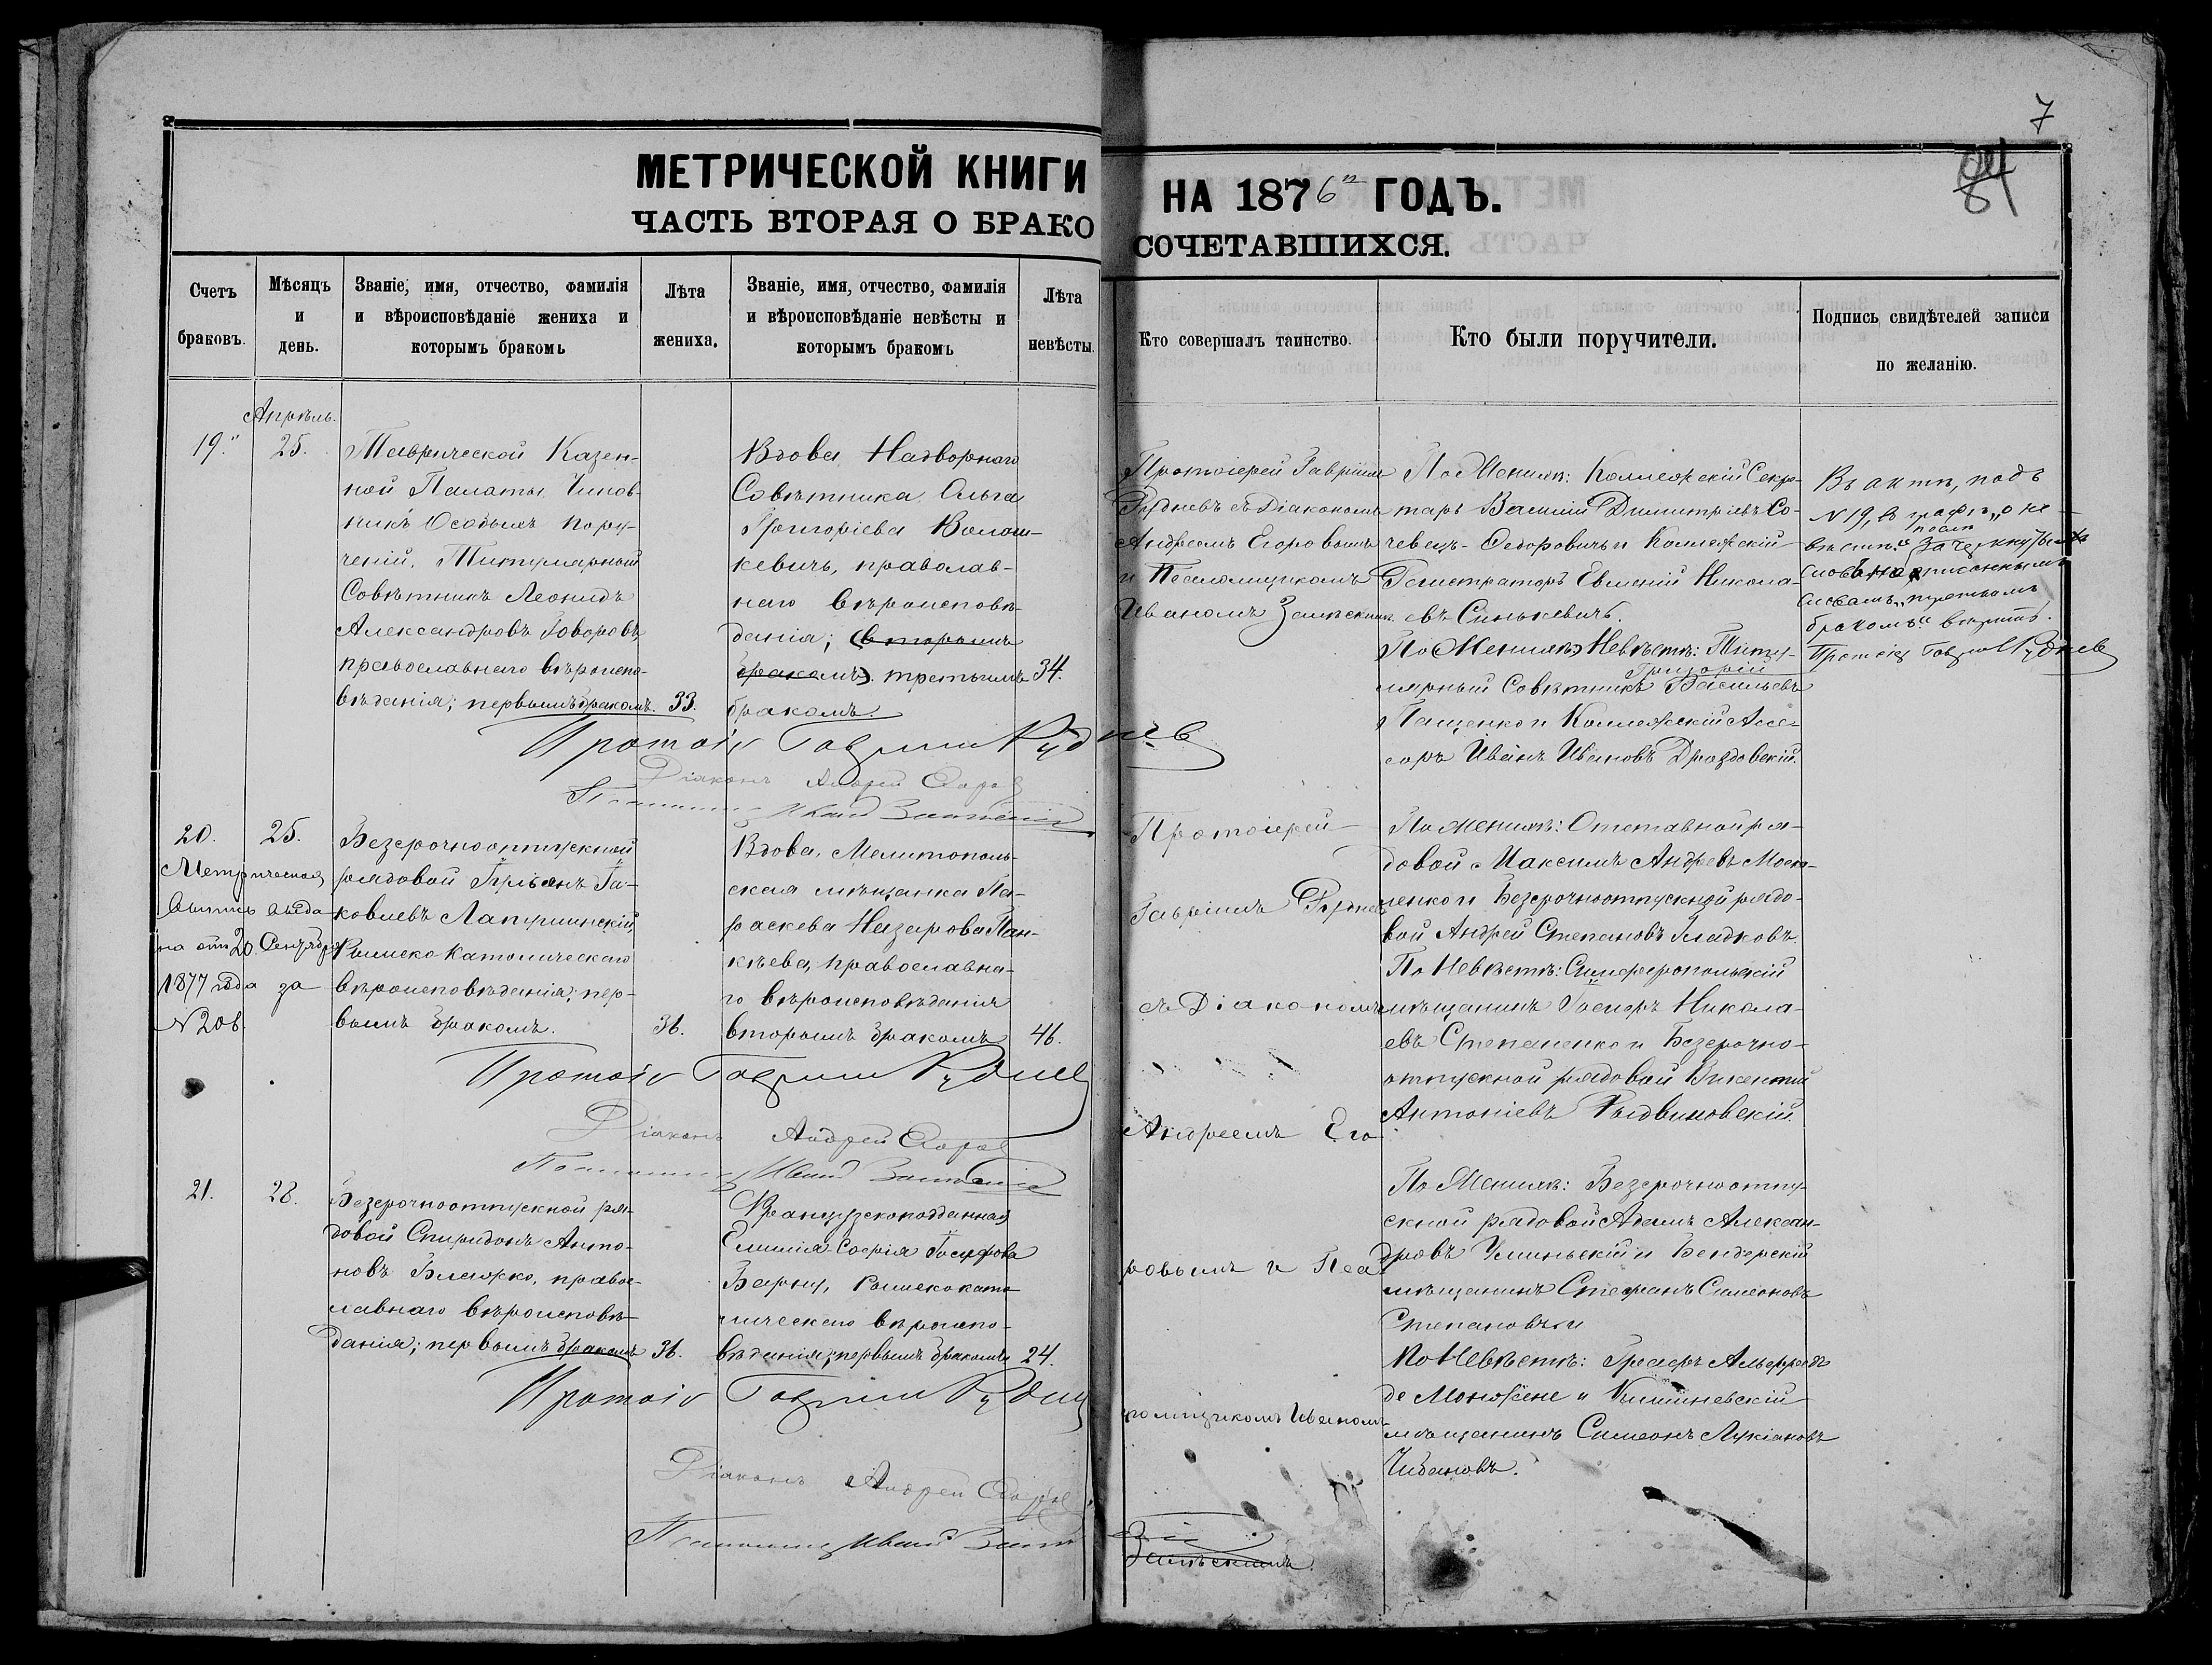 7
84
МЕТРИЧЕСКОЙ КНИГИ НА 1876й ГОДЪ.
ЧАСТЬ ВТОРАЯ О БРАКОСОЧЕТАВШИХСЯ.
Счетъ
браковъ.
Мѣсяцъ
и
день.
Званіе, имя, отчество, фамилія
и вѣроисповѣданіе жениха и
которымъ бракомъ
Лѣта
жениха.
Званіе, имя, отчество, фамилія
и вѣроисповѣданіе невѣсты и
которымъ бракомъ
Лѣта
невѣсты.
Кто совершалъ таинство.
Кто были поручители.
Подпись свидѣтелей записи
по желанію.
Апрѣль.
19.
25.
Таврической Казен-
ной Палаты Чинов-
никъ Особыхъ пору-
ченій, Титулярный
Совѣтникъ Леонидъ
Александровъ Говоровъ,
православнаго вѣроиспо-
вѣданія; первымъ бракомъ.
33.
Вдова Надворнаго
Совѣтника Ольга
Григоріева Волош-
кевичъ, православ-
наго вѣроисповѣ-
данія; (вторымъ
бракомъ). третьимъ
бракомъ.
34.
Протоіерей Гавріилъ
Рудневъ съ Діакономъ
Андреемъ Егоровымъ
и Псаломщикомъ
Иваномъ Залѣскимъ.
По Женихѣ: Коллежскій Секре-
тарь Василій Димитріевъ Со-
чевецъ-Федоровичъ и Коллежскій
Регистраторъ Евгеній Никола-
евъ Синькевичъ.
По Невѣстѣ: Титу-
лярный Совѣтникъ Григорій Васильевъ
Пащенко и Коллежскій Ассе-
соръ Иванъ Ивановъ Дроздовскій.
Въ актѣ, подъ
№ 19, въ графѣ „о не-
вѣстѣ“ послѣ зачеркнутыхъ
словъ надписаннымъ
словамъ „третьимъ
бракомъ“ вѣрить.
Протоіер Гавріил Рудневъ
Протоіе Гавріил Рудневъ
Діаконъ Андрей Егоров
Псаломщик Иван Залѣскій
20.
25.
Метрическая
выпись выда-
на отъ 20 Сентября
1877 года за
№ 208.
Безсрочноотпускной
рядовой Юріянъ Іа-
ковлевъ Лапушинскій
Римско Католическаго
вѣроисповѣданія; пер-
вымъ бракомъ.
36.
Вдова, Мелитополь-
ская мѣщанка Па-
раскева Назарова Пан-
кѣева, православна-
го вѣроисповѣданія
вторымъ бракомъ
46.
Протоіерей
Гавріилъ Рудневъ
съ Діакономъ
Андреемъ Его-
ровымъ и Пса-
ломщикомъ Иваномъ
Залѣскимъ.
По Женихѣ: Отставной ря-
довой Максимъ Андреевъ Моско-
ленко и Безсрочноотпускной рядо-
вой Андрей Степановъ Гладковъ.
По Невѣстѣ: Симферопольскій
мѣщанинъ Іосифъ Никола-
евъ Степаненко и Безсрочно-
отпускной рядовой Викентій
Антоніевъ Рыдвиловскій.
Протоіе Гавріил Рудневъ
Діаконъ Андрей Егоров
Псаломщик Иван Залѣскій
21.
28.
Безсрочноотпускной ря-
довой Спиридонъ Анто-
новъ Блажко, правос-
лавнаго вѣроисповѣ-
данія; первымъ бракомъ
36.
Французскоподданная
Емилія-Софія Іосифова
Барну, Римскокато-
лическаго вѣроиспо-
вѣданія; первымъ бракомъ
24.
По Женихѣ: Безсрочноотпу-
скной рядовой Адамъ Алексан-
дровъ Улинскій и Бендерскій
мѣщанинъ Стефанъ Симеоновъ
Степановъ и
По Невѣстѣ: Графъ Альфредъ
де Монжене и Кишиневскій
мѣщанинъ Симеонъ Лукіановъ
Чибановъ.
Протоіе Гавріил Рудневъ
Діаконъ Андрей Егоров
Псаломщик Иван Залѣ